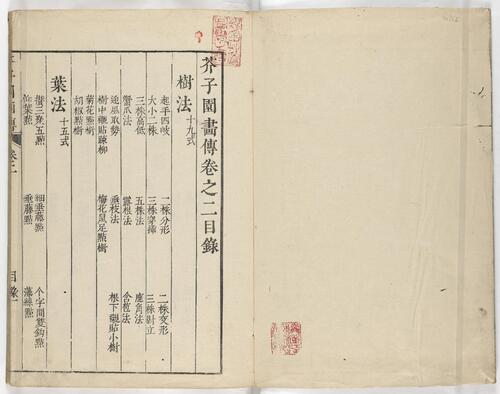 芥子園畫傳卷之二目錄
樹法 十九式
起手四岐 一株分形 二株交形
大小二株 三株穿插 三株對立
三株高低 五株法 鹿角法
蟹爪法 露根法 含苞法
迎風取勢 垂枝法 根下襯貼小樹
樹中襯貼疎柳 梅花鼠足點樹
菊花點樹
胡椒點樹
葉法 十五式
攢三聚五點 細垂藤點 个字間雙鈎點
仰葉點 垂藤點 藻絲點
子園畫傳 卷二 目錄一